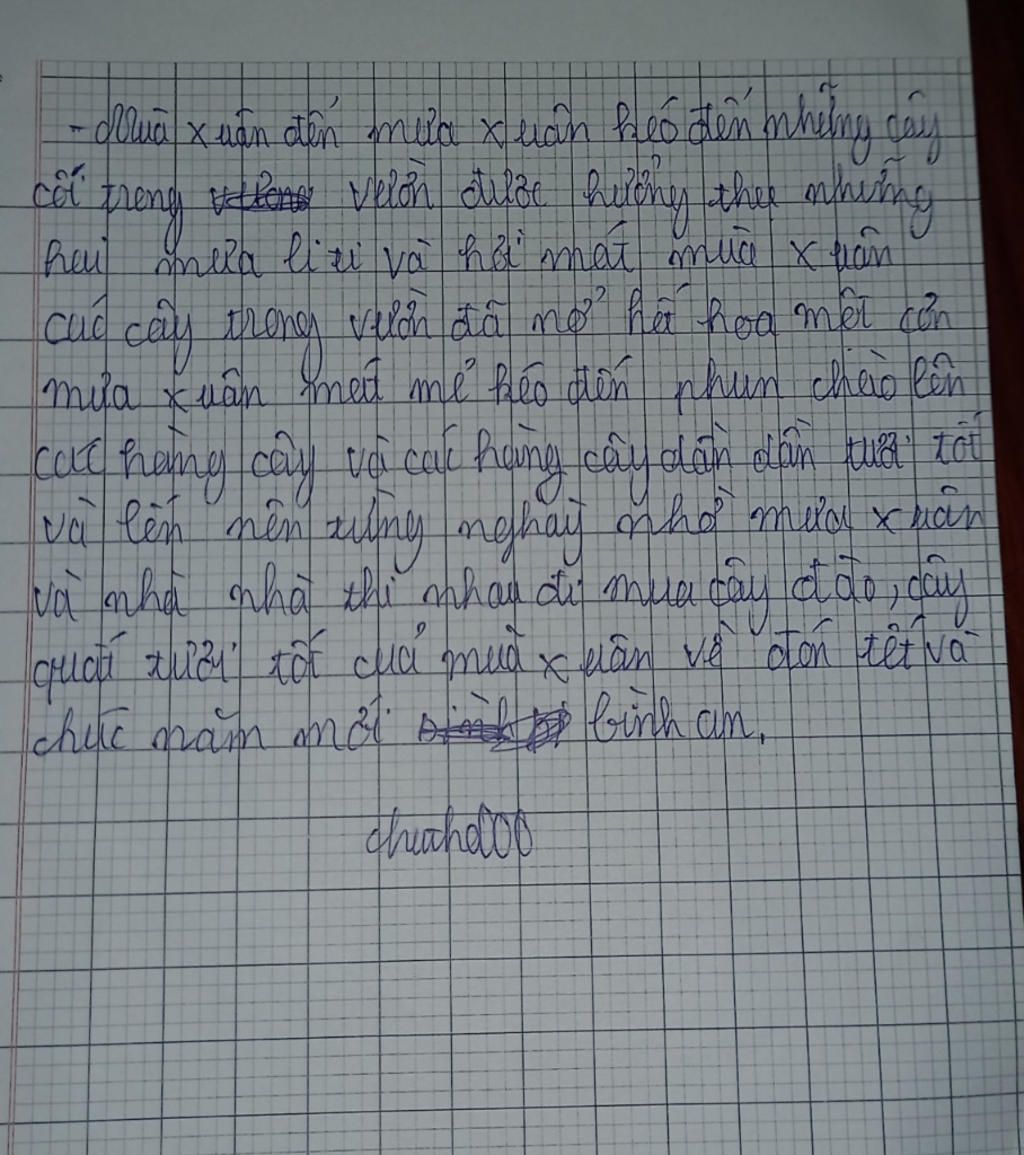 - Mùa xuân đến mưa xuân kéo đến những cây
cối trong vườn được hưởng thụ những
hạt mưa li ti và hơi mát mùa xuân
các cây trong vườn đã nở hết hoa một cơn
mưa xuân mát mẻ kéo đến phun chào lên
các hàng cây và các hàng cây dần dần tươi tốt
và lớn nên từng nghày nhờ mưa xuân
và nhà nhà thi nhau đi mua cây đào, cây
quất tươi tốt của mùa xuân về đón tết và
chúc năm mới bình an.